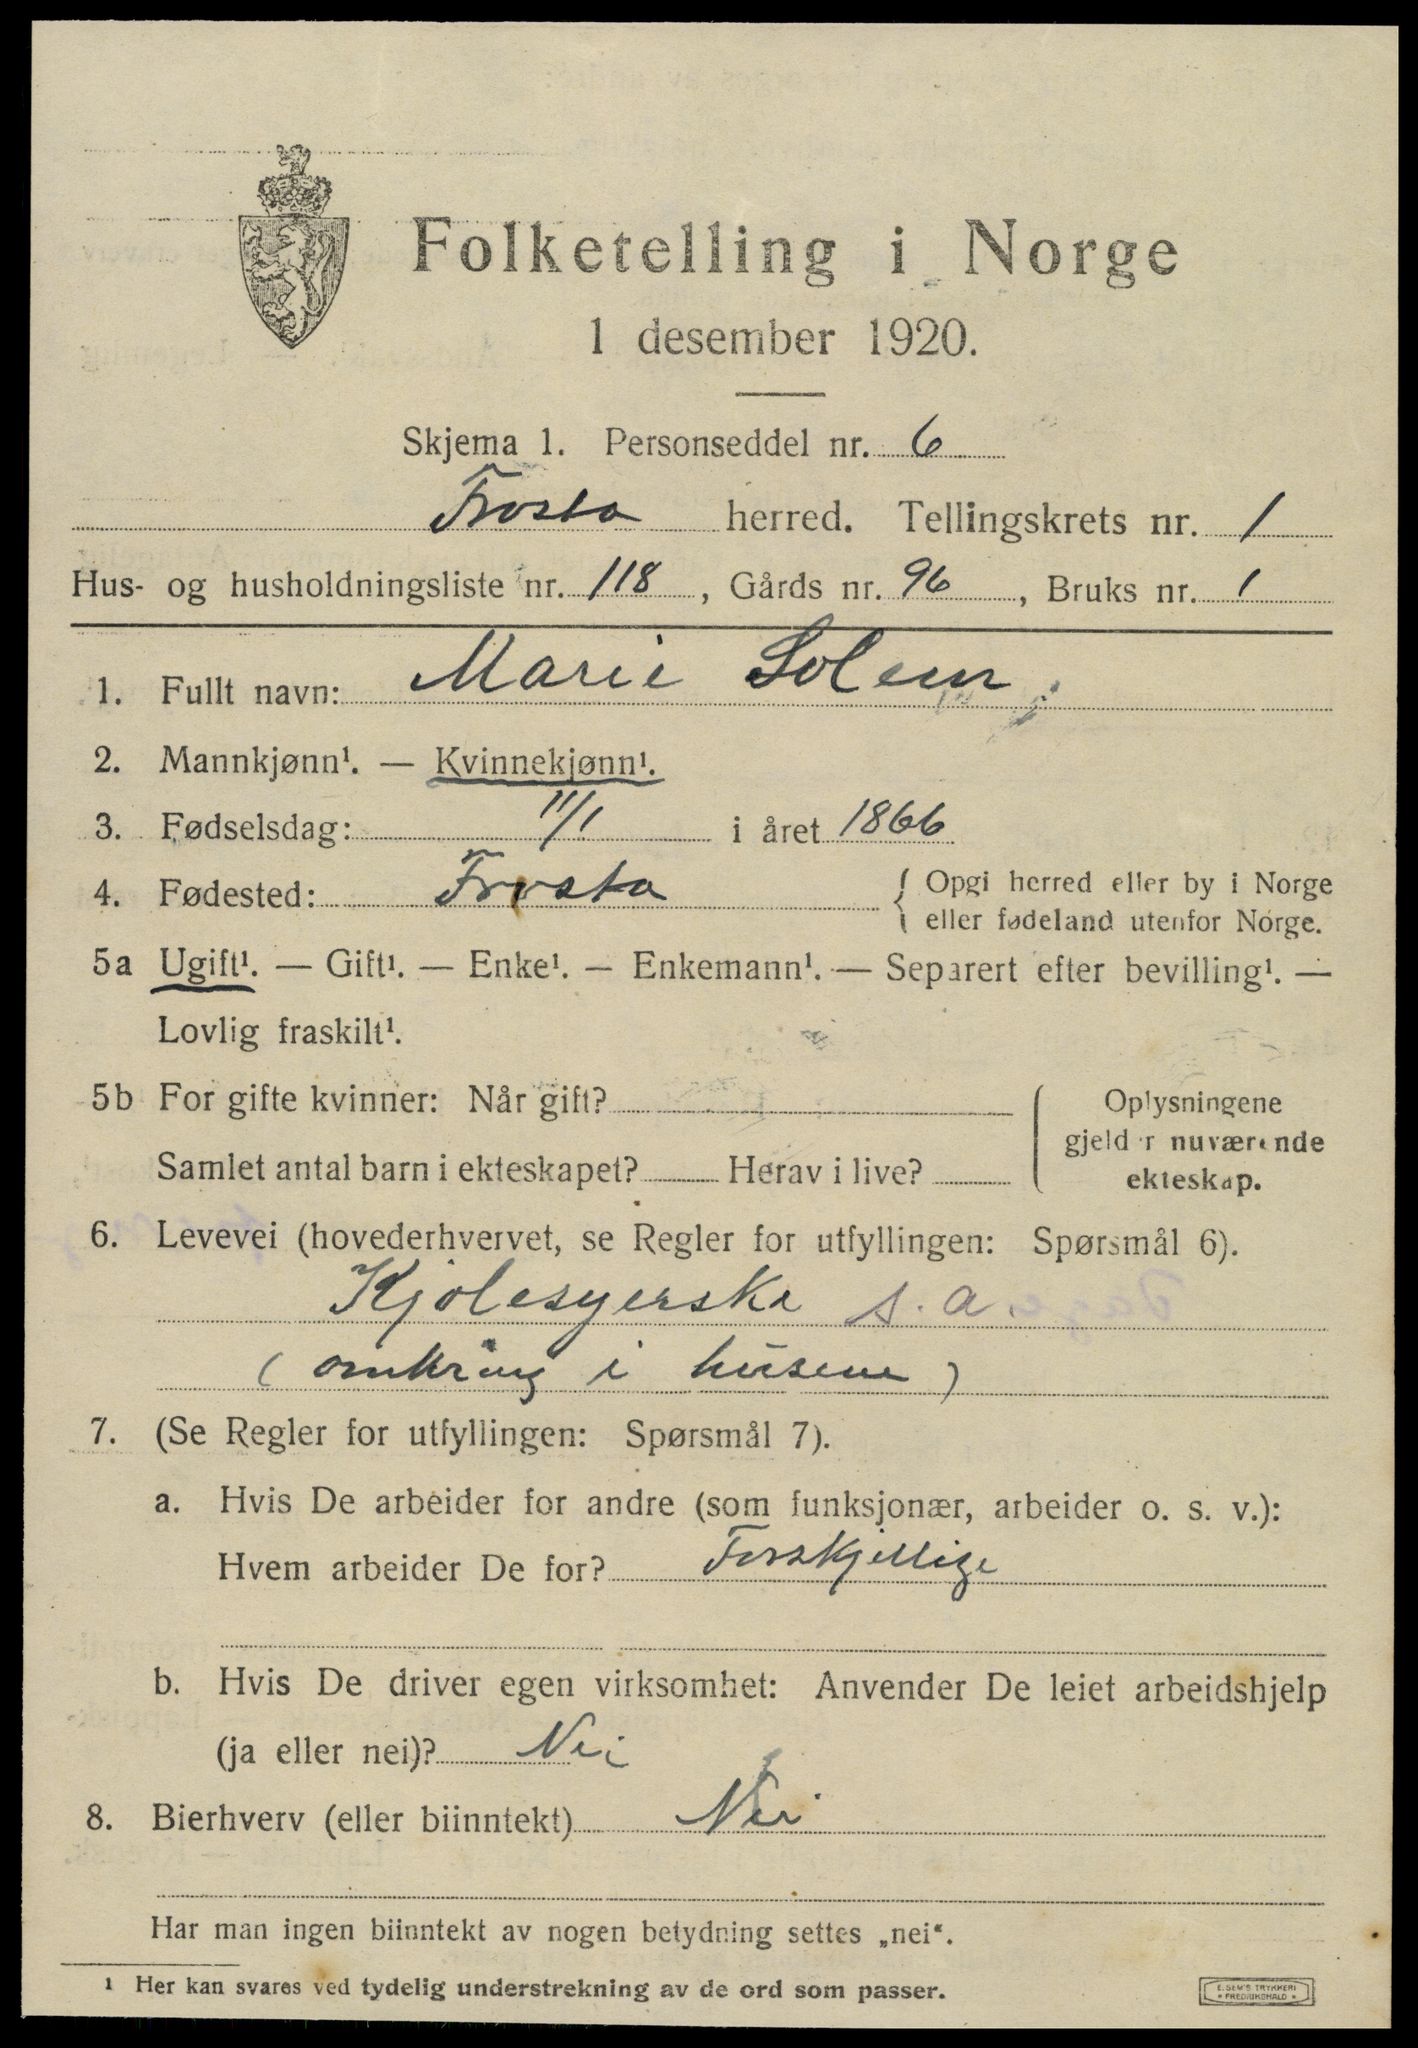 Folketelling i Norge
1 desember 1920.
Skjema 1. Personseddel nr. 6
Frosta herred. Tellingskrets nr. 1
Hus- og husholdningsliste nr. 118, Gårds nr. 96, Bruks nr. 1
1. Fullt navn: Marie Solem
2. Mannkjønn¹. — Kvinnekjønn¹.
3. Fødselsdag: 11/1 i året 1866
4. Fødested: Frosta { Opgi herred eller by i Norge
eller fødeland utenfor Norge.
5a Ugift¹. — Gift¹. — Enke¹. — Enkemann¹. — Separert efter bevilling¹. —
Lovlig fraskilt¹.
5b For gifte kvinner: Når gift?
Samlet antal barn i ekteskapet? Herav i live?
Oplysningene
gjelder nuværende
ekteskap.
6. Levevei (hovederhvervet, se Regler for utfyllingen: Spørsmål 6).
Kjolesyerske s. a.
(omkring i husene)
7. (Se Regler for utfyllingen: Spørsmål 7).
a. Hvis De arbeider for andre (som funksjonær, arbeider o. s. v.):
Hvem arbeider De for? Forskjellige
b. Hvis De driver egen virksomhet: Anvender De leiet arbeidshjelp
(ja eller nei)? Nei
8. Bierhverv (eller biinntekt) Nei
Har man ingen biinntekt av nogen betydning settes „nei“.
¹ Her kan svares ved tydelig understrekning av de ord som passer.
E. SEM'S TRYKKERI
FREDRIKSHALD